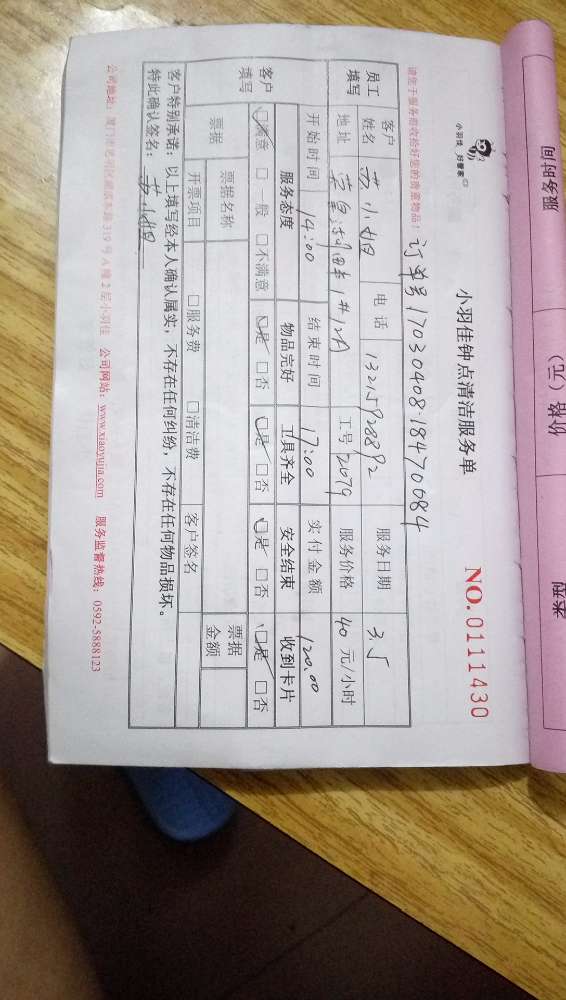 小羽佳 好管家
小羽佳钟点清洁服务单
NO. 0111430
请您于服务前收拾好您的贵重物品！ 订单号17030408184770084
员工填写
客户姓名 苏小姐 电话 13215928892 服务日期 3.5
地址 1#12A 工号 2079 服务价格 40 元/小时
开始时间 14:00 结束时间 17:00 实付金额 120.00
客户填写
服务态度 物品完好 工具齐全 安全结束 收到卡片
☑满意 □一般 □不满意 ☑是 □否 ☑是 □否 ☑是 □否 ☑是 □否
票据 票据名称 票据金额
开票项目 □服务费 □清洁费 客户签名
客户特别承诺：以上填写经本人确认属实，不存在任何纠纷，不存在任何物品损坏。
特此确认签名： 苏小姐
公司地址：厦门市思明区 319号A幢2层小羽佳 公司网站：www.xiaoyujia.com 服务监督热线：0592-5888123
服务时间
价格（元）